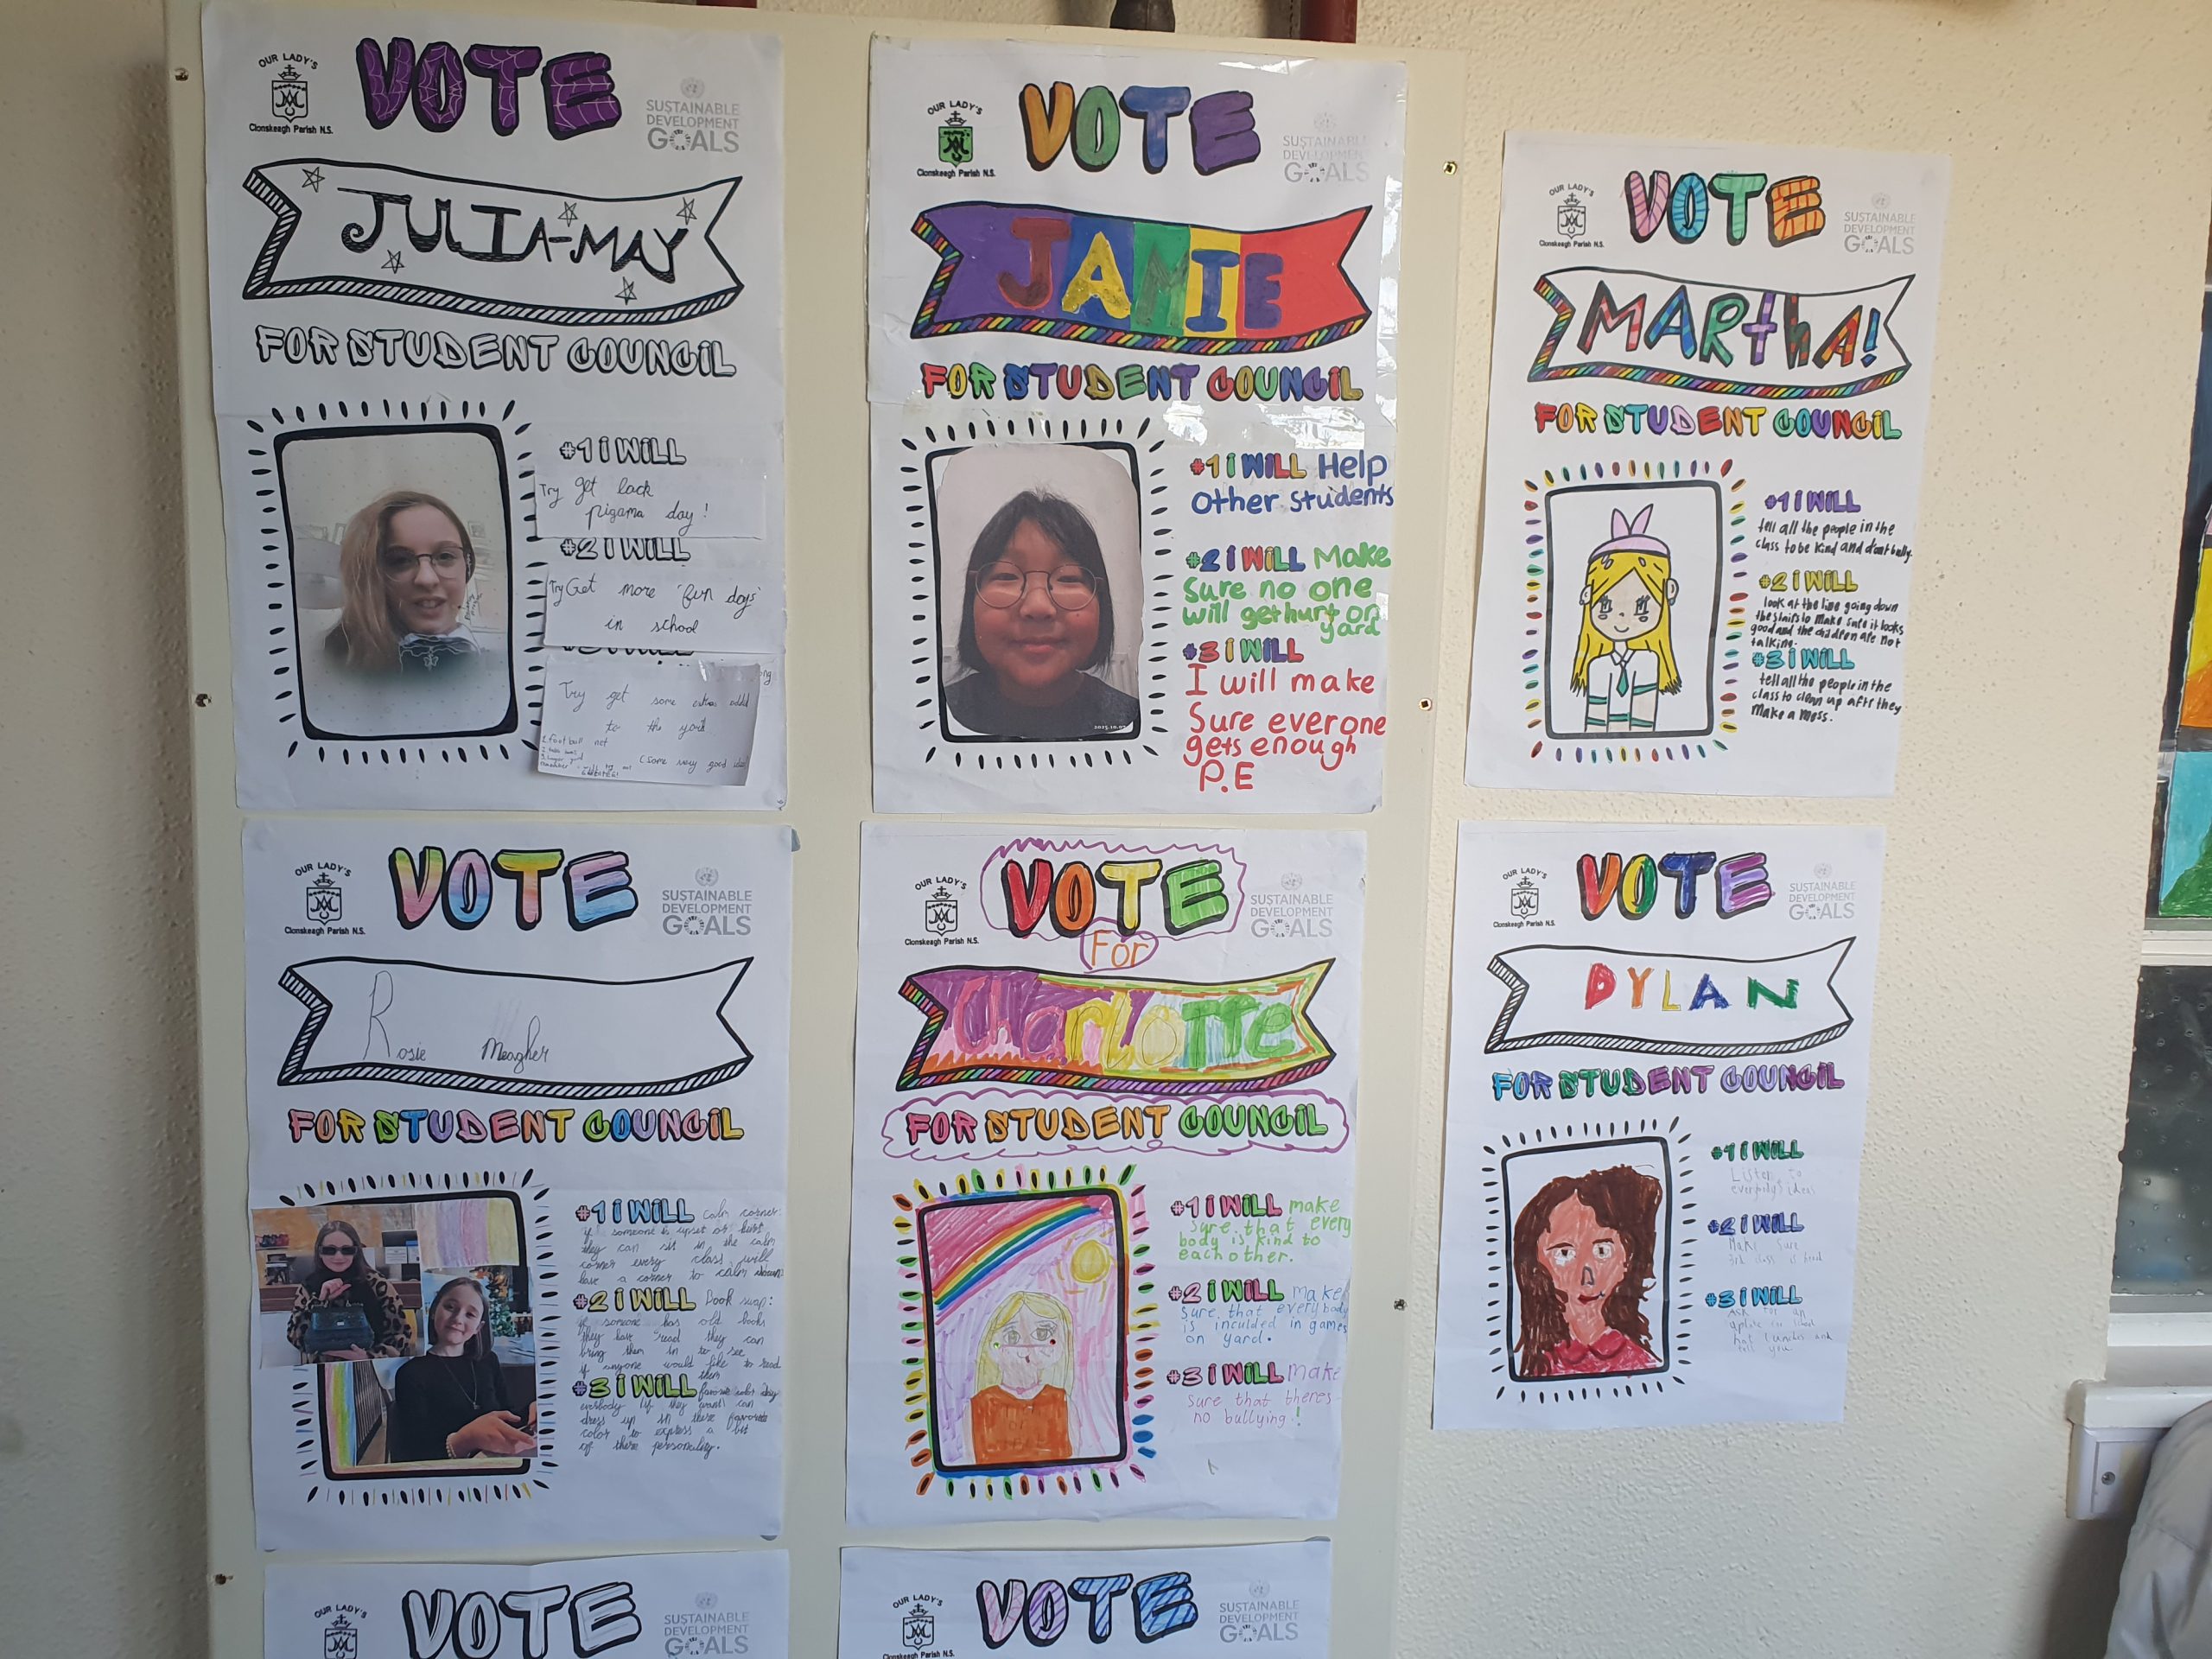 OUR LADY'S
Clonskeagh Parish N.S.
VOTE
SUSTAINABLE
DEVELOPMENT
GOALS
JULIA-MAY
FOR STUDENT COUNCIL
#1 I WILL
Try get back
pigama day!
#2 I WILL
Try Get more "fun days"
in school
Try get some extras added
to the yard
1 foot ball net
(some very good ideas
OUR LADY'S
Clonskeagh Parish N.S.
VOTE
SUSTAINABLE
DEVELOPMENT
GOALS
JAMIE
FOR STUDENT COUNCIL
#1 I WILL Help
Other Students
#2 I WILL Make
Sure no one
will get hurt on
yard
#3 I WILL
I will make
Sure everone
gets enough
P.E
OUR LADY'S
Clonskeagh Parish N.S.
VOTE
SUSTAINABLE
DEVELOPMENT
GOALS
MARthA!
FOR STUDENT COUNCIL
#1 I WILL
tell all the people in the
class to be kind and don't bully.
#2 I WILL
look at the line going down
the stairs to make sure it looks
good and the children are not
talking.
#3 I WILL
tell all the people in the
class to clean up aftr they
make a mess.
OUR LADY'S
Clonskeagh Parish N.S.
VOTE
SUSTAINABLE
DEVELOPMENT
GOALS
Rosie Meagher
FOR STUDENT COUNCIL
#1 I WILL Calm corner:
if someone is upset or hurt
they can sit in the calm
corner every class will
have a corner to calm down
#2 I WILL Book swap:
if someone has old books
they have read they can
bring them in to see
if anyone would like to read
them
#3 I WILL favorite color day
everybody if they want can
dress up in there favorite
color to express a bit
of there personality.
OUR LADY'S
Clonskeagh Parish N.S.
VOTE
For
SUSTAINABLE
DEVELOPMENT
GOALS
CHarLoTTe
FOR STUDENT COUNCIL
#1 I WILL make
sure that every
body is kind to
each other.
#2 I WILL make
sure that everybody
is inculded in games
on yard.
#3 I WILL make
sure that theres
no bullying!
OUR LADY'S
Clonskeagh Parish N.S.
VOTE
SUSTAINABLE
DEVELOPMENT
GOALS
DYLAN
FOR STUDENT COUNCIL
#1 I WILL
Listen to
everybody's ideas
#2 I WILL
Make Sure
3rd class is heard
#3 I WILL
Ask for an
hot lunches and
tell you
OUR LADY'S
VOTE
SUSTAINABLE
DEVELOPMENT
GOALS
OUR LADY'S
Clonskeagh Parish N.S.
VOTE
SUSTAINABLE
DEVELOPMENT
GOALS